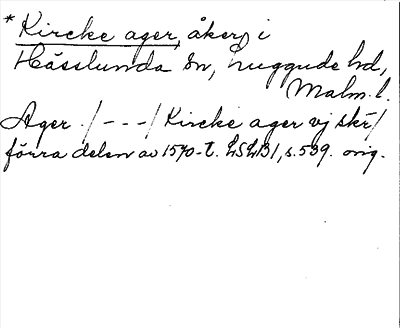 * Kircke ager, åker, i
Hässlunda sn, Luggude hd,
Malm. l.
Ager. /---/ Kircke ager vj skr/
förra delen av 1570-t. LSLB1, s. 539. orig.